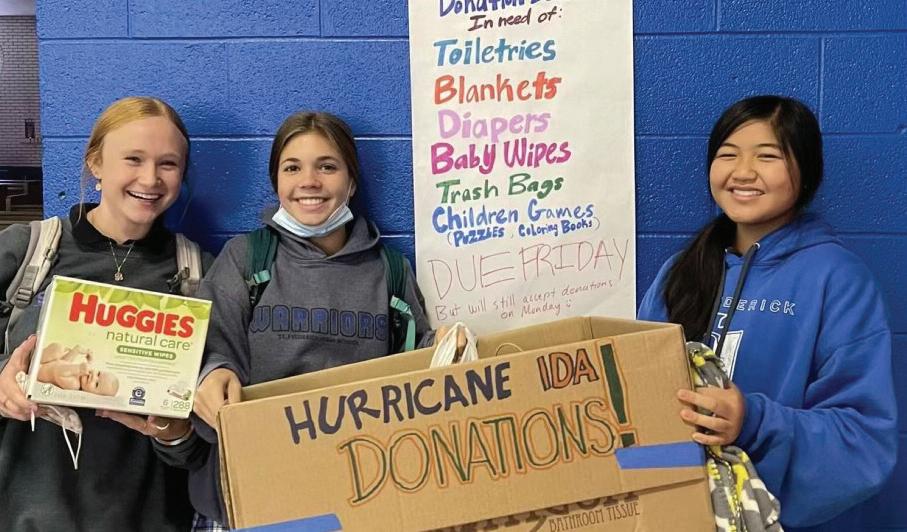 In need of:
Toiletries
Blankets
Diapers
Baby Wipes
Trash Bags
Children Games
(Puzzles, Coloring Books)
DUE FRIDAY
But will still accept donations
on Monday
HUGGIES
natural care
SENSITIVE WIPES
6 288
WARRIORS
ERICK
HURRICANE IDA!
DONATIONS!
BATHROOM TISSUE